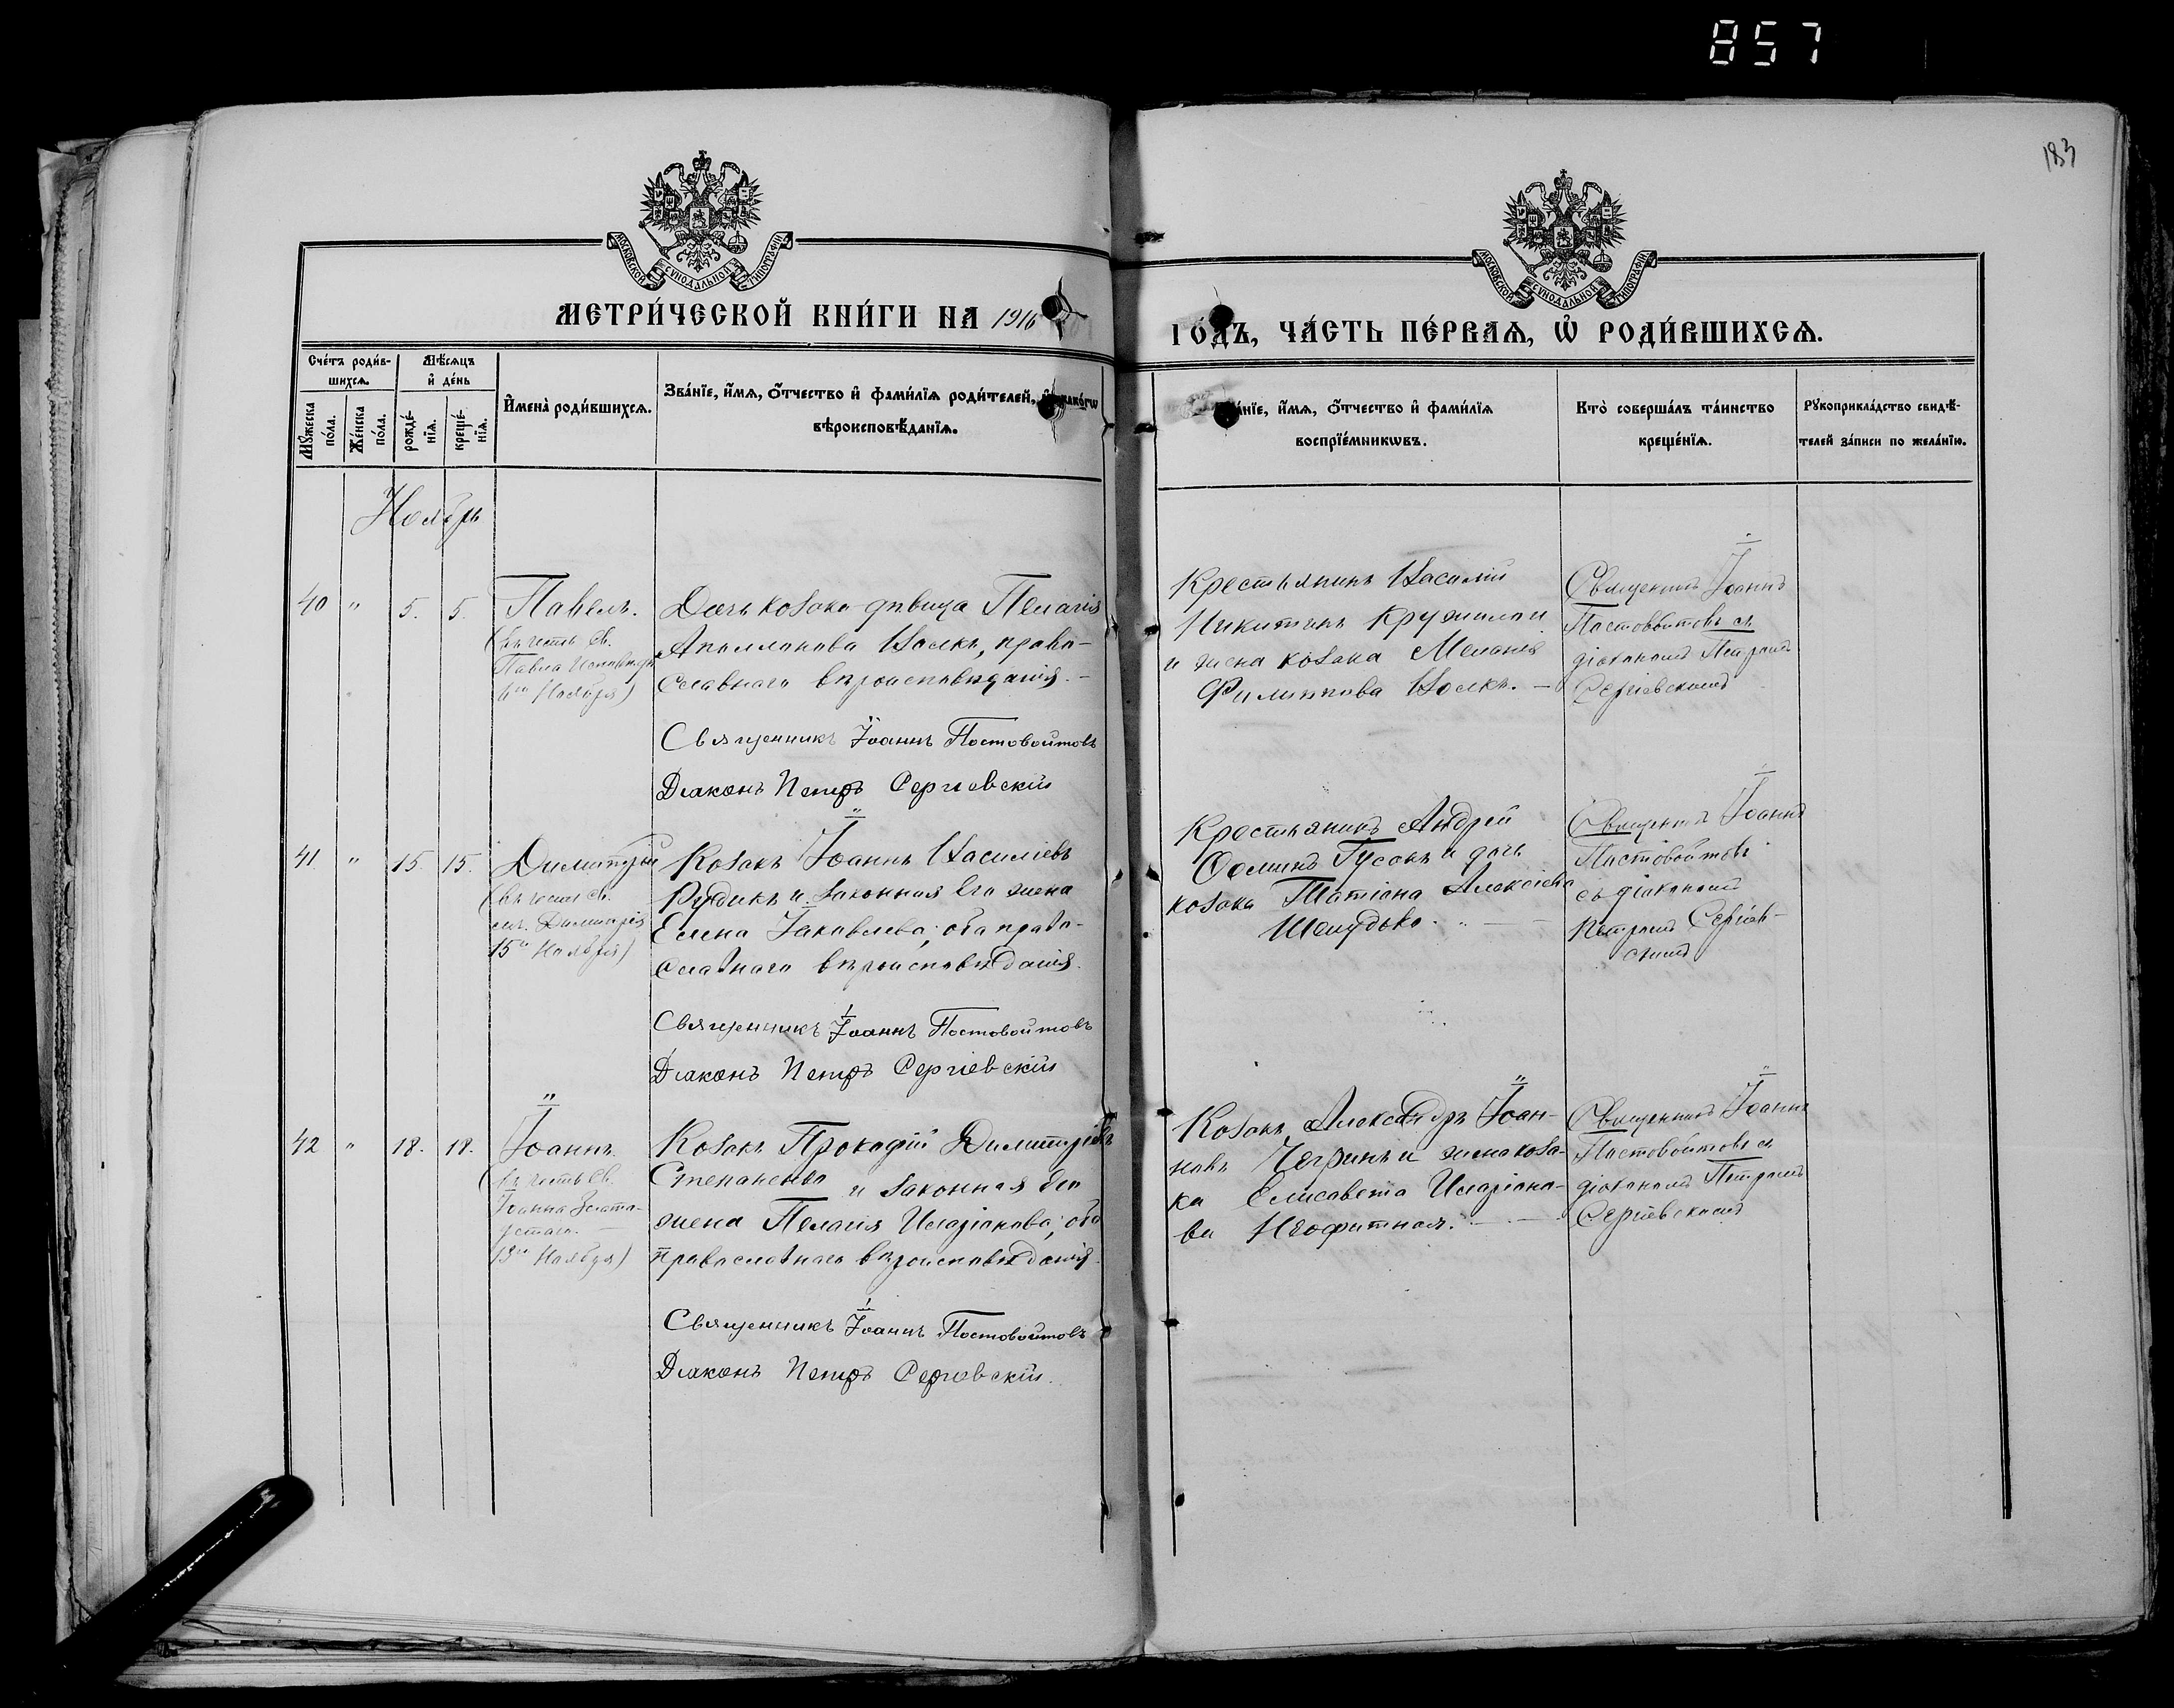 857
183
МОСКОВСКОЙ СѴНОДАЛЬНОЙ ТИПОГРАФІИ
МОСКОВСКОЙ СѴНОДАЛЬНОЙ ТИПОГРАФІИ
МЕТРИ́ЧЕСКОЙ КНИ́ГИ НА 1916
ГО́ДЪ, ЧА́СТЬ ПЕ́РВАѦ, Ѡ҆ РОДИ́ВШИХСѦ.
Сче́тъ роди́в-
шихсѧ.
Мѣ́сѧцъ
и҆ де́нь
Мꙋ́жеска по́ла.
Же́нска по́ла.
рожде́-
нїѧ.
креще́-
нїѧ.
И҆мена̀ роди́вшихсѧ.
Зва́нїе, и҆́мѧ, ѻ҆́тчество и҆ фами́лїѧ роди́телей, и҆ како́гѡ
вѣроисповѣ́данїѧ.
Зва́нїе, и҆́мѧ, ѻ҆́тчество и҆ фами́лїѧ
воспрїе́мникѡвъ.
Кто̀ соверша́лъ та́инство
креще́нїѧ.
Рꙋкоприкла́дство свидѣ́-
телей за́писи по жела́нїю.
Ноябрь
40 " 5. 5.
Павелъ.
(въ честь св.
Павла Исповѣд.
6го Ноября)
Дочь козака дѣвица Пелагія
Аполлонова Волкъ, право-
славнаго вѣроисповѣданія. –
Священникъ Іоаннъ Постовойтовъ
Діаконъ Петръ Сергіевскій
Крестьянинъ Василій
Никитинъ
и жена козака Меланія
Филиппова Волкъ. –
Священникъ Іоаннъ
Постовойтовъ съ
діакономъ Петромъ
Сергіевскимъ
41. " 15. 15.
Димитрій
(въ честь св.
муч. Димитрія
15го Ноября)
Козакъ Іоаннъ Васильевъ
Рудикъ и законная его жена
Елена Іаковлева; оба право-
славнаго вѣроисповѣданія.
Священникъ Іоаннъ Постовойтовъ
Діаконъ Петръ Сергіевскій
Крестьянинъ Андрей
Гусакъ и дочь
козака Татіана Алексіева
Шелудько. –
Священникъ Іоаннъ
Постовойтовъ
съ діакономъ
Петромъ Сергіев-
скимъ
42 " 18. 18.
Іоаннъ.
(въ честь св.
Іоанна Злато-
устаго.
13го Ноября)
Козакъ Прокофій Димитріевъ
Степаненко и законная его
жена Пелагія Иларіонова; оба
православнаго вѣроисповѣданія.
Священникъ Іоаннъ Постовойтовъ
Діаконъ Петръ Сергіевскій.
Козакъ Александръ Іоан-
новъ Чегринъ и жена коза-
ка Елисавета Иларіоно-
ва Неофитная. –
Священникъ Іоаннъ
Постовойтовъ съ
діакономъ Петромъ
Сергіевскимъ